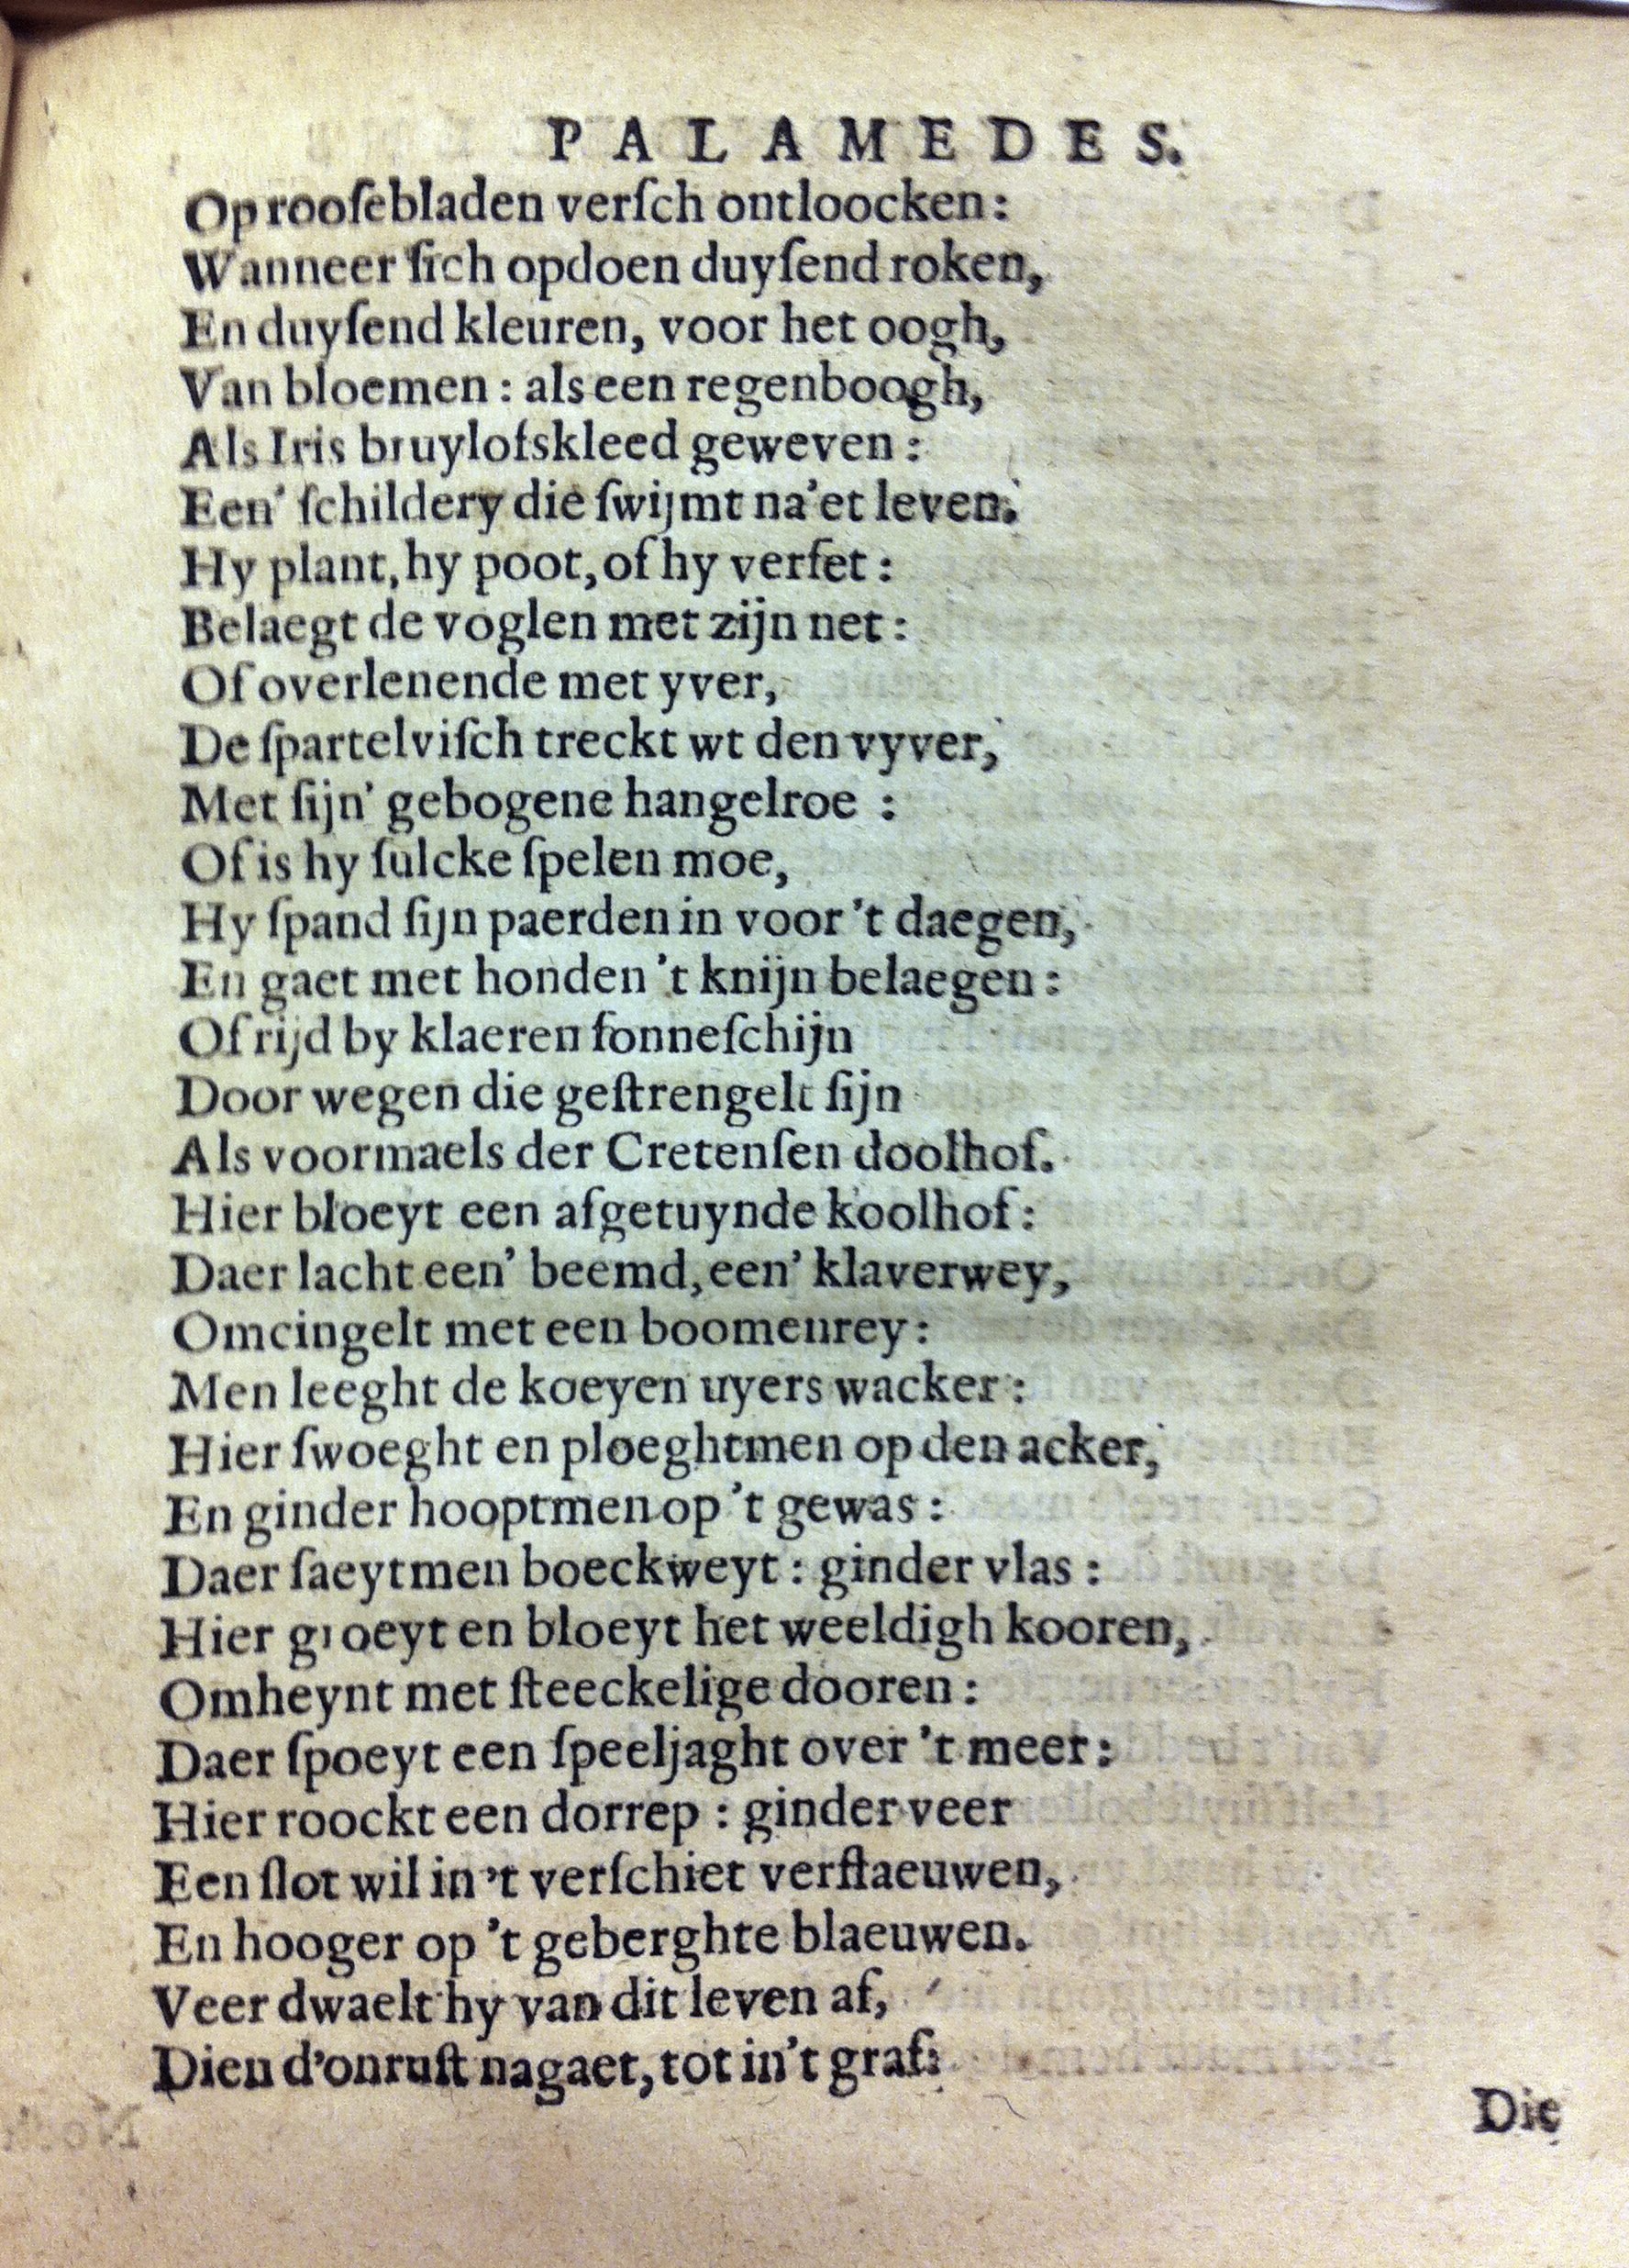 PALAMEDES.
Op rooſebladen verſch ontloocken:
Wanneer ſich opdoen duyſend roken,
En duyſend kleuren, voor het oogh,
Van bloemen: als een regenboogh,
Als Iris bruylofskleed geweven:
Een' ſchildery die ſwijmt na'et leven.
Hy plant, hy poot, of hy verſet:
Belaegt de voglen met zijn net:
Of overlenende met yver,
De ſpartelviſch treckt wt den vyver,
Met ſijn' gebogene hangelroe :
Of is hy ſulcke ſpelen moe,
Hy ſpand ſijn paerden in voor 't daegen,
En gaet met honden 't knijn belaegen:
Of rijd by klaeren ſonneſchijn
Door wegen die geſtrengelt ſijn
Als voormaels der Cretenſen doolhof.
Hier bloeyt een afgetuynde koolhof:
Daer lacht een' beemd, een' klaverwey,
Omcingelt met een boomenrey:
Men leeght de koeyen uyers wacker:
Hier ſwoeght en ploeghtmen op den acker,
En ginder hooptmen op 't gewas:
Daer ſaeytmen boeckweyt: ginder vlas:
Hier groeyt en bloeyt het weeldigh kooren,
Omheynt met ſteeckelige dooren:
Daer ſpoeyt een ſpeeljaght over 't meer:
Hier roockt een dorrep: ginder veer
Een ſlot wil in 't verſchiet verflaeuwen,
En hooger op 't geberghte blaeuwen.
Veer dwaelt hy van dit leven af,
Dien d'onruſt nagaet, tot in't graf:
Die